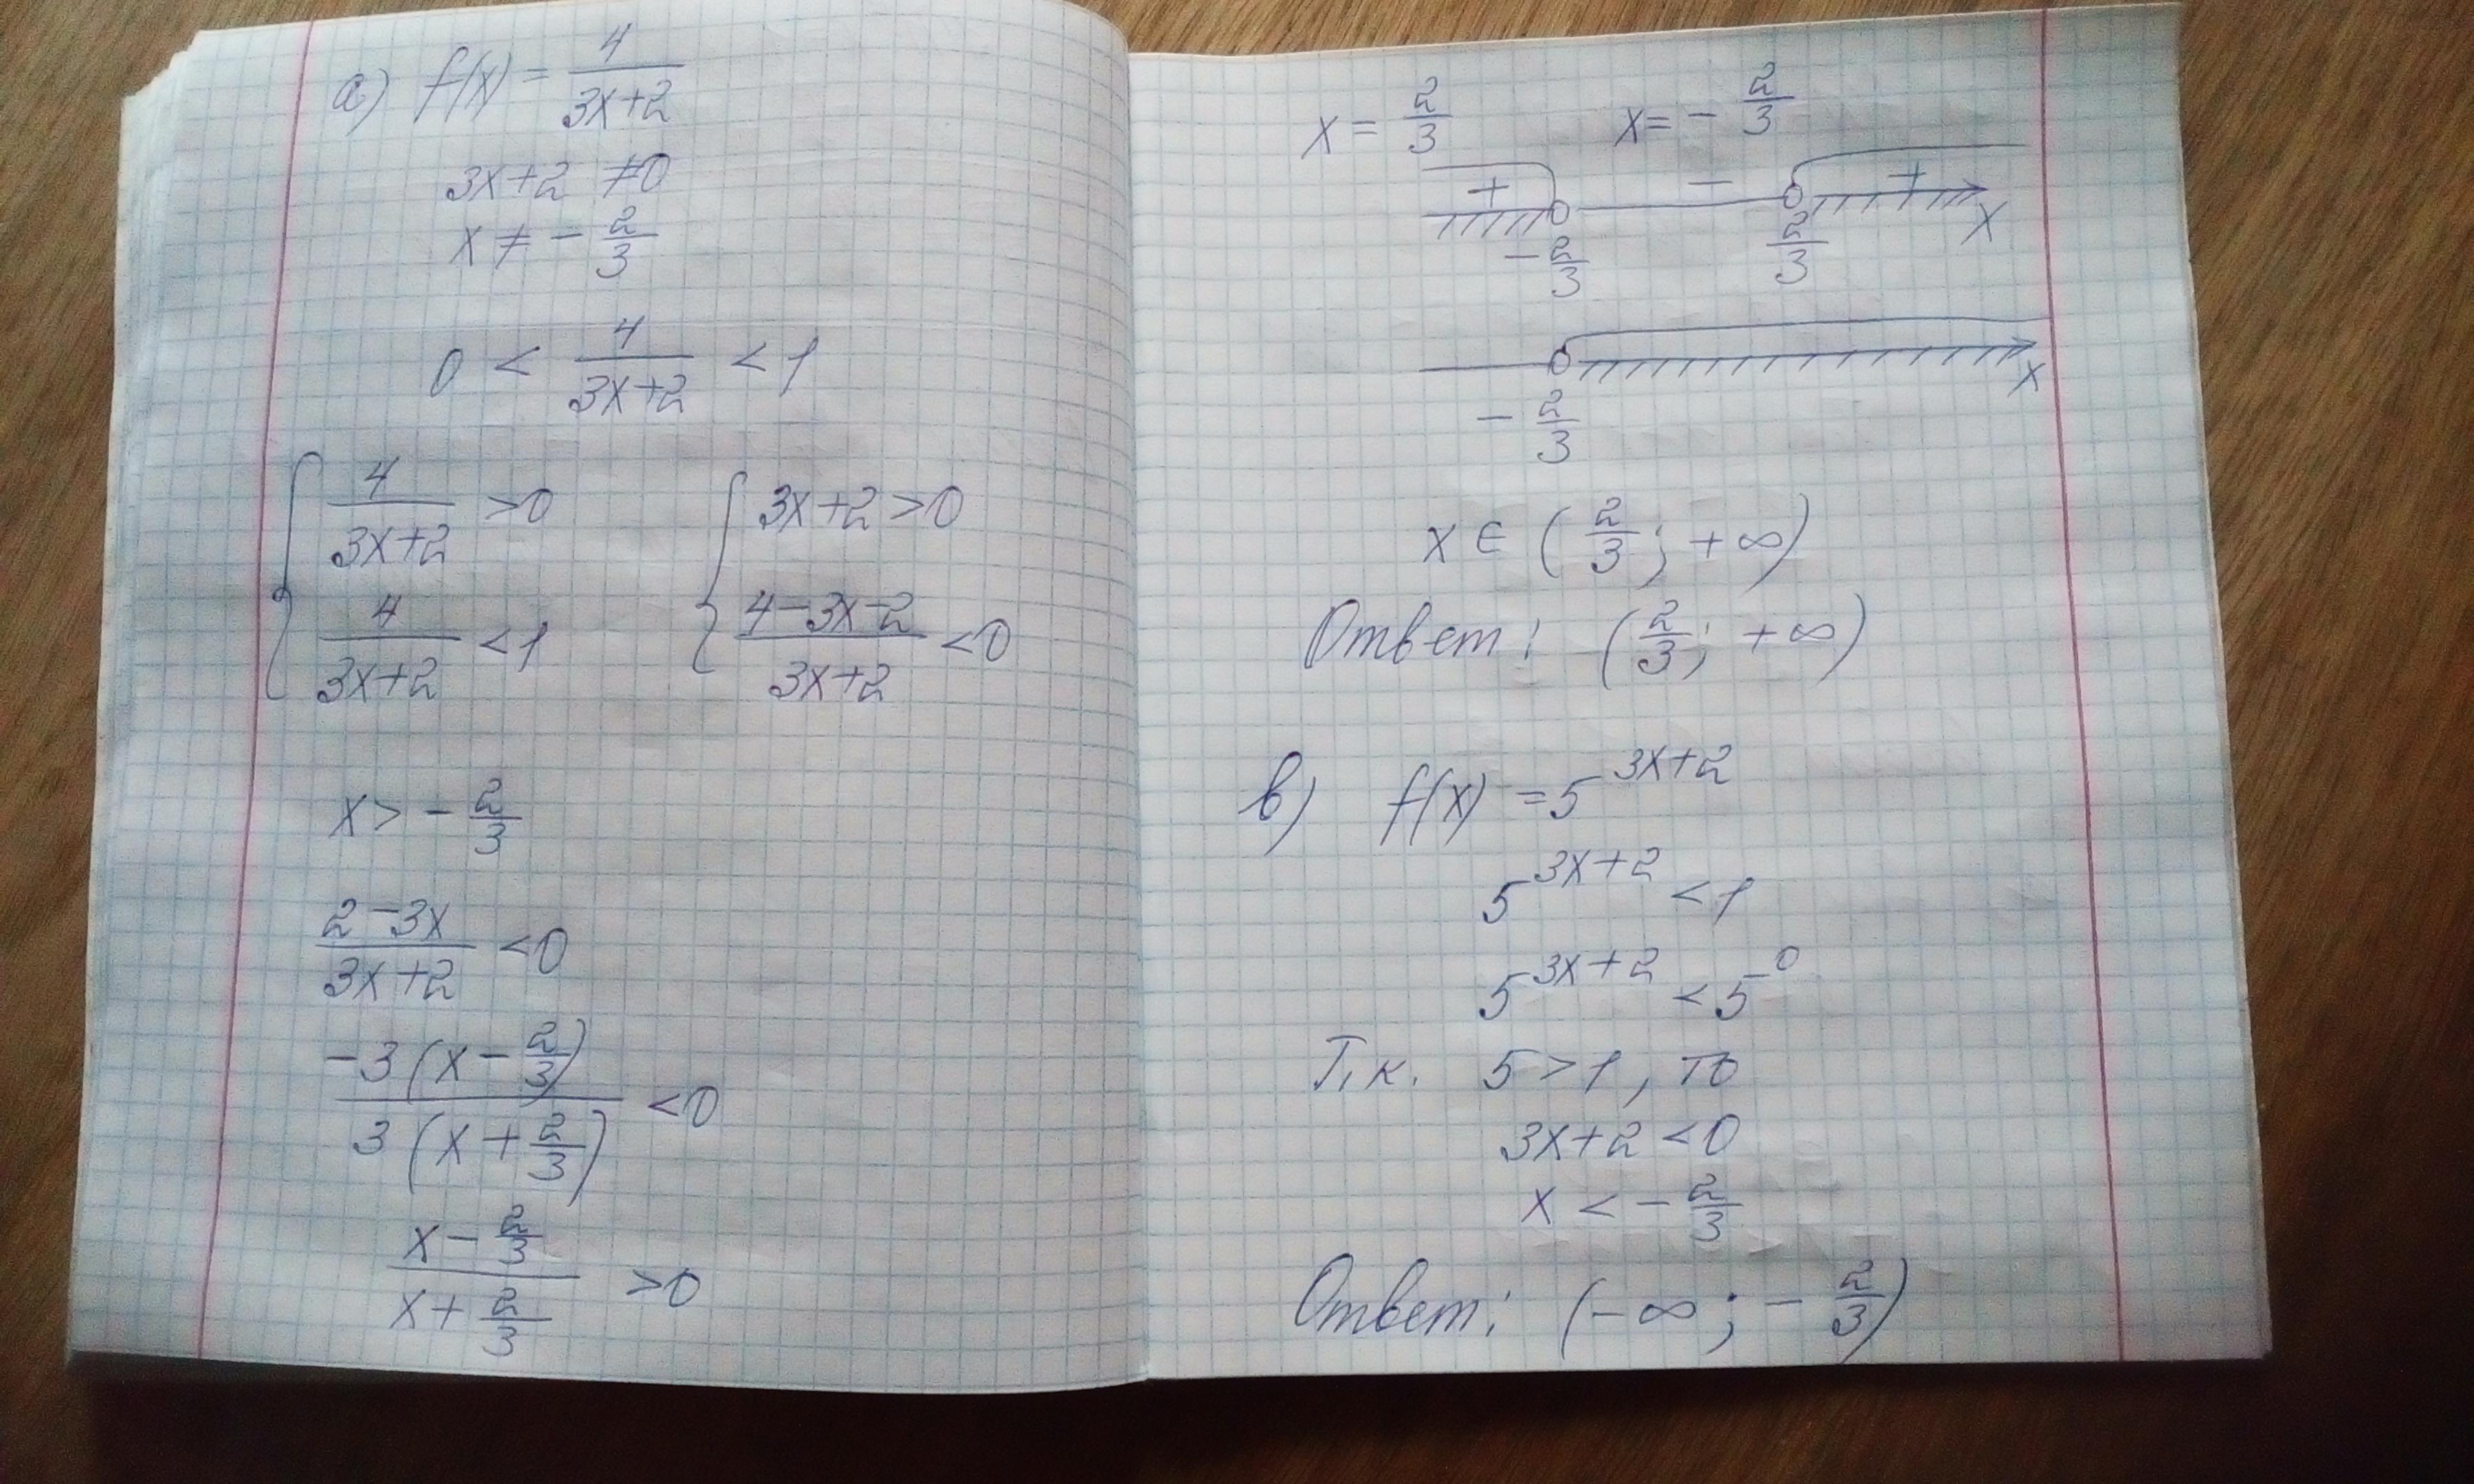 а) f(x) = 4/(3x+2)
3x+2 ≠0
x ≠ - 2/3
0 < 4/(3x+2) < 1
{ 4/(3x+2) >0 { 3x+2>0
4/(3x+2) <1 (4-3x-2)/(3x+2) <0
x> - 2/3
(2-3x)/(3x+2) <0
-3(x - 2/3)/3(x + 2/3) <0
(x - 2/3)/(x + 2/3) >0
x = 2/3 x = - 2/3
+ - +
-2/3 2/3 x
-2/3 x
x ∈ (2/3; +∞)
Ответ: (2/3; +∞)
в) f(x) =5^(3x+2)
5^(3x+2) <1
5^(3x+2) <5^0
Т.к. 5>1, то
3x+2 <0
x < - 2/3
Ответ: (-∞; - 2/3)